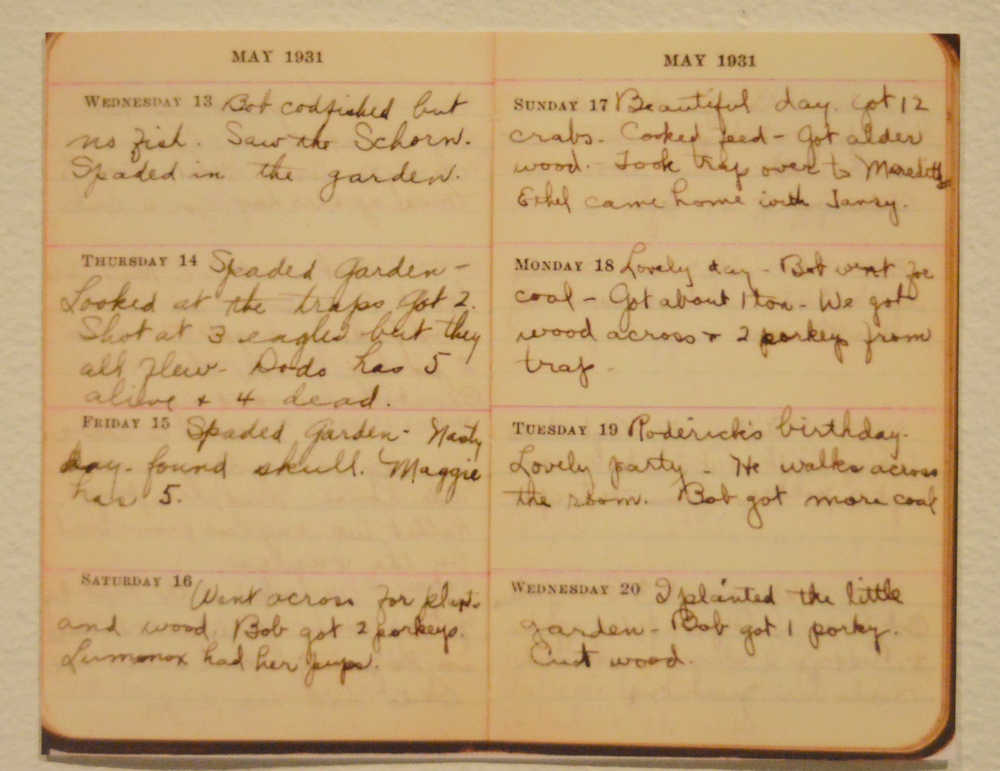 MAY 1931
WEDNESDAY 13 Bob codfished but
no fish. Saw the Schorn.
Spaded in the garden.
THURSDAY 14 Spaded Garden -
Looked at the traps Got 2.
Shot at 3 eagles but they
all flew - Dodo has 5
alive & 4 dead.
FRIDAY 15 Spaded Garden - Nasty
day - found skull. Maggie
has 5.
SATURDAY 16 Went across for
and wood. Bob got 2 porkeys.
had her pups.
MAY 1931
SUNDAY 17 Beautiful day. Got 12
crabs. Cooked feed - Got alder
wood. Took trap over to
Ethel came home with
MONDAY 18 Lovely day - Bob went for
coal - Got about 1 ton - We got
wood across & 2 porkeys from
trap.
TUESDAY 19 Roderick's birthday.
Lovely party - He walks across
the room. Bob got more coal
WEDNESDAY 20 I planted the little
garden - Bob got 1 porky.
Cut wood.